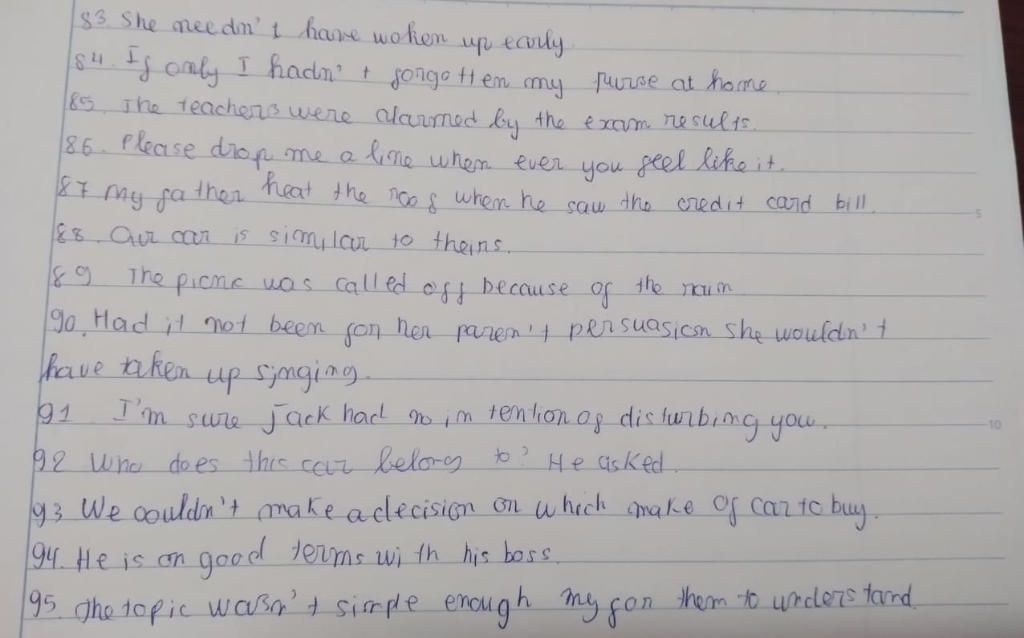 83. She needn't have woken up early.
84. If only I hadn't forgotten my purse at home.
85. The teachers were alarmed by the exam results.
86. Please drop me a line when ever you feel like it.
87 my father heat the roof when he saw the credit card bill.
88. Our car is similar to theirs.
89 The picnic was called off because of the rain
90. Had it not been for her paren't persuasion she wouldn't
have taken up singing.
91 I'm sure Jack had no intention of disturbing you.
92 Who does this car belong to? He asked.
93 We couldn't make a decision on which make of car to buy.
94. He is on good terms with his boss.
95. The topic wasn't simple enough my for them to understand.
5
10